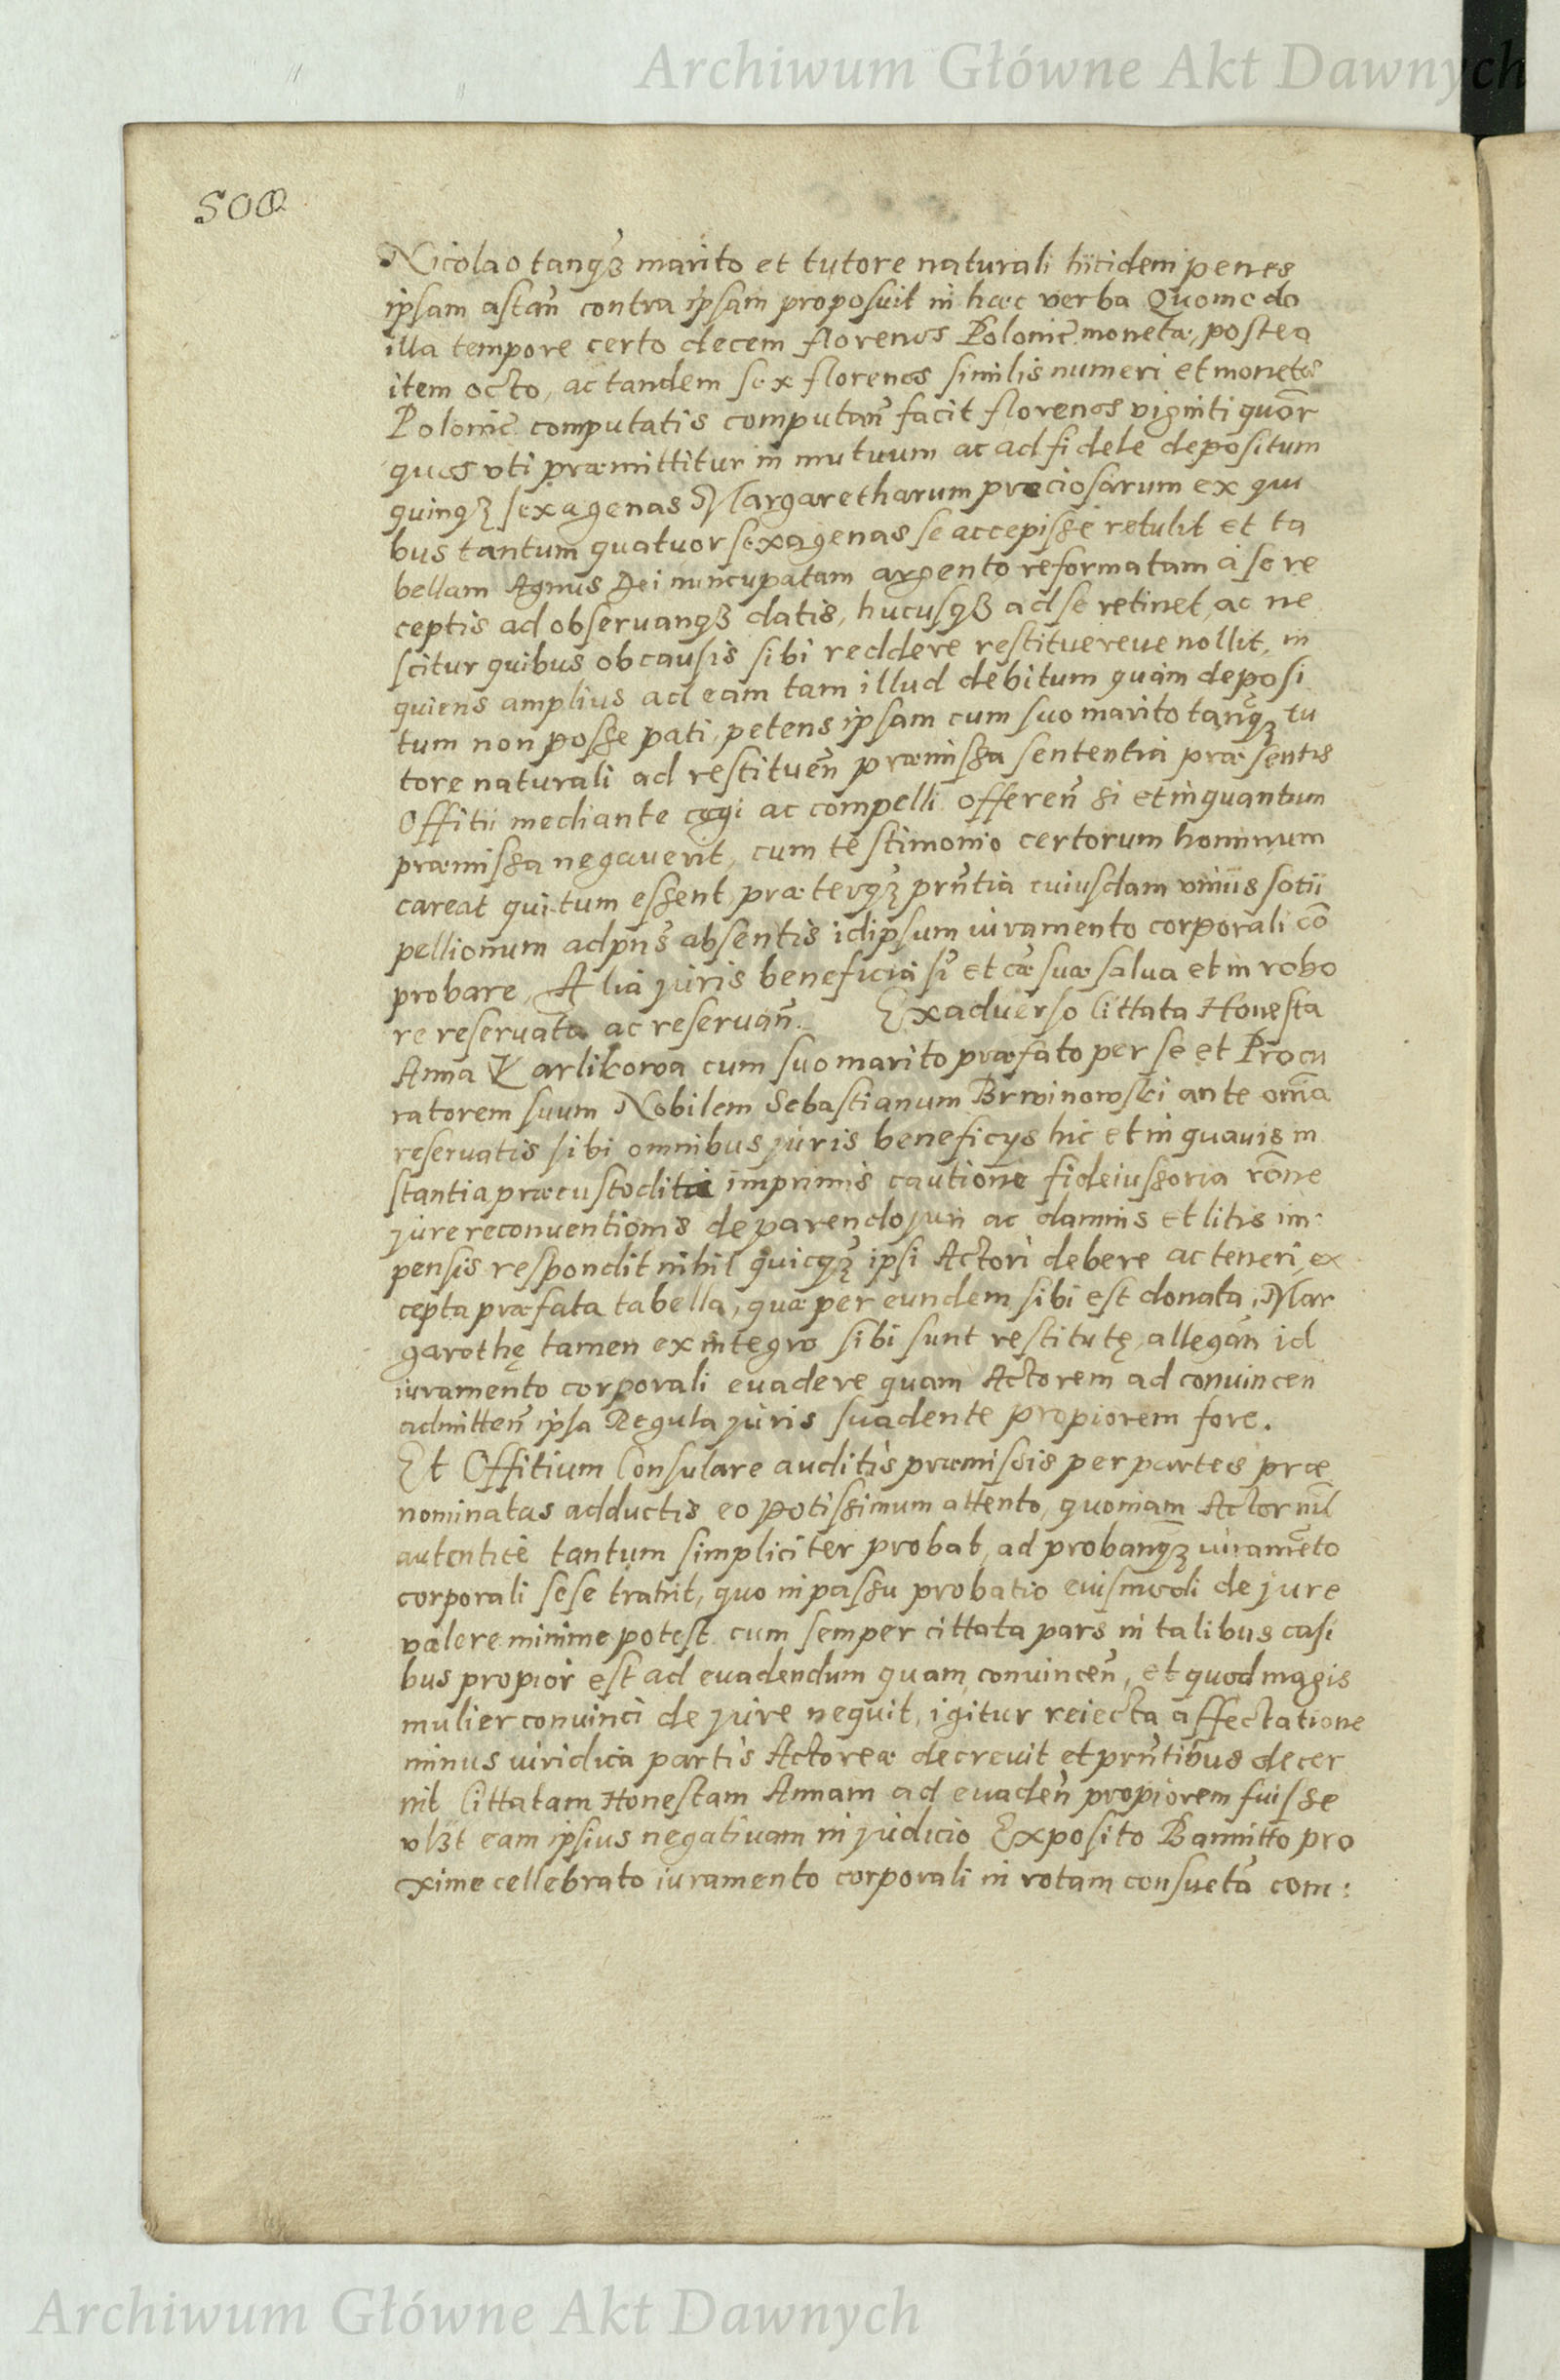 Archiwum Główne Akt Dawnych
500
Nicolao tanqȝ marito et tutore naturali hitidem penes
ipsam astan̄ contra ipsam proposuit in hæc verba Quomodo
illa tempore certo decem florenos Polonic̄ monetæ, postea
item octo, ac tandem sex florenos similis numeri et monetæ
Polonic̄ computatis computan̄ facit florenos viginti quor̄
quos vti præmittitur in mutuum ac ad fidele depositum
quinqȝ sexagenas Margaretharum preciosarum ex qui
bus tantum quatuor sexagenas se accepisse retulit et ta
bellam Agnus Dei nuncupatam argento reformatam à se re
ceptis ad obseruanqȝ datis, hucusqȝ ad se retinet, ac ne
scitur quibus ob causis sibi reddere restituereue nollit, in
quiens amplius ad eam tam illud debitum quàm deposi
tum non posse pati, petens ipsam cum suo marito tanqȝ tu
tore naturali ad restituen̄ præmissa sententia præsentis
Offitii mediante cogi ac compelli offeren̄ si et inquantum
præmissa negauerit, cum testimonio certorum hominum
careat qui tum essent præterqȝ prn̄tia cuiusdam vnius sotii
pellionum ad pn̄s absentis idipsum iuramento corporali cō
probare, Alia juris beneficia sī et cæ suæ salua et in robo
re reseruata ac reseruan̄. Ex aduerso Cittata Honesta
Anna Karlikowa cum suo marito præfato per se et Procu
ratorem suum Nobilem Sebastianum Brwinowski ante om̄ia
reseruatis sibi omnibus juris beneficys hic et in quauis in
stantia præcustodita imprimis cautione fideiussoria rōne
jure reconuentionis de parendo juri ac damnis et litis im:
pensis respondit nihil quicqȝ ipsi Actori debere ac teneri, ex
cepta præfata tabella, quæ per eundem sibi est donata, Mar
garethę tamen ex integro sibi sunt restitutę, allegan̄ id
iuramento corporali euadere quam Actorem ad conuincen
admitten̄ ipsa Regula juris suadente propiorem fore.
Et Offitium Consulare auditis præmissis per partes præ
nominatas adductis eo potissimum attento, quoniam Actor nīl
autenticè tantum simpliciter probat, ad probanqȝ iuramēto
corporali sese trahit, quo in passu probatio eiusmodi de jure
valere minime potest cum semper cittata pars in talibus casi
bus propior est ad euadendum quam conuincen̄, et quod magis
mulier conuinci de jure nequit, igitur reiecta affectatione
minus viridica partis Actoreæ decreuit et prn̄tibus decer
nit Cittatam Honestam Annam ad euaden̄ propiorem fuisse
vlȝt eam ipsius negatiuam in judicio Exposito Bannitto pro
xime cellebrato iuramento corporali in rotam consuetā com:
Archiwum Główne Akt Dawnych